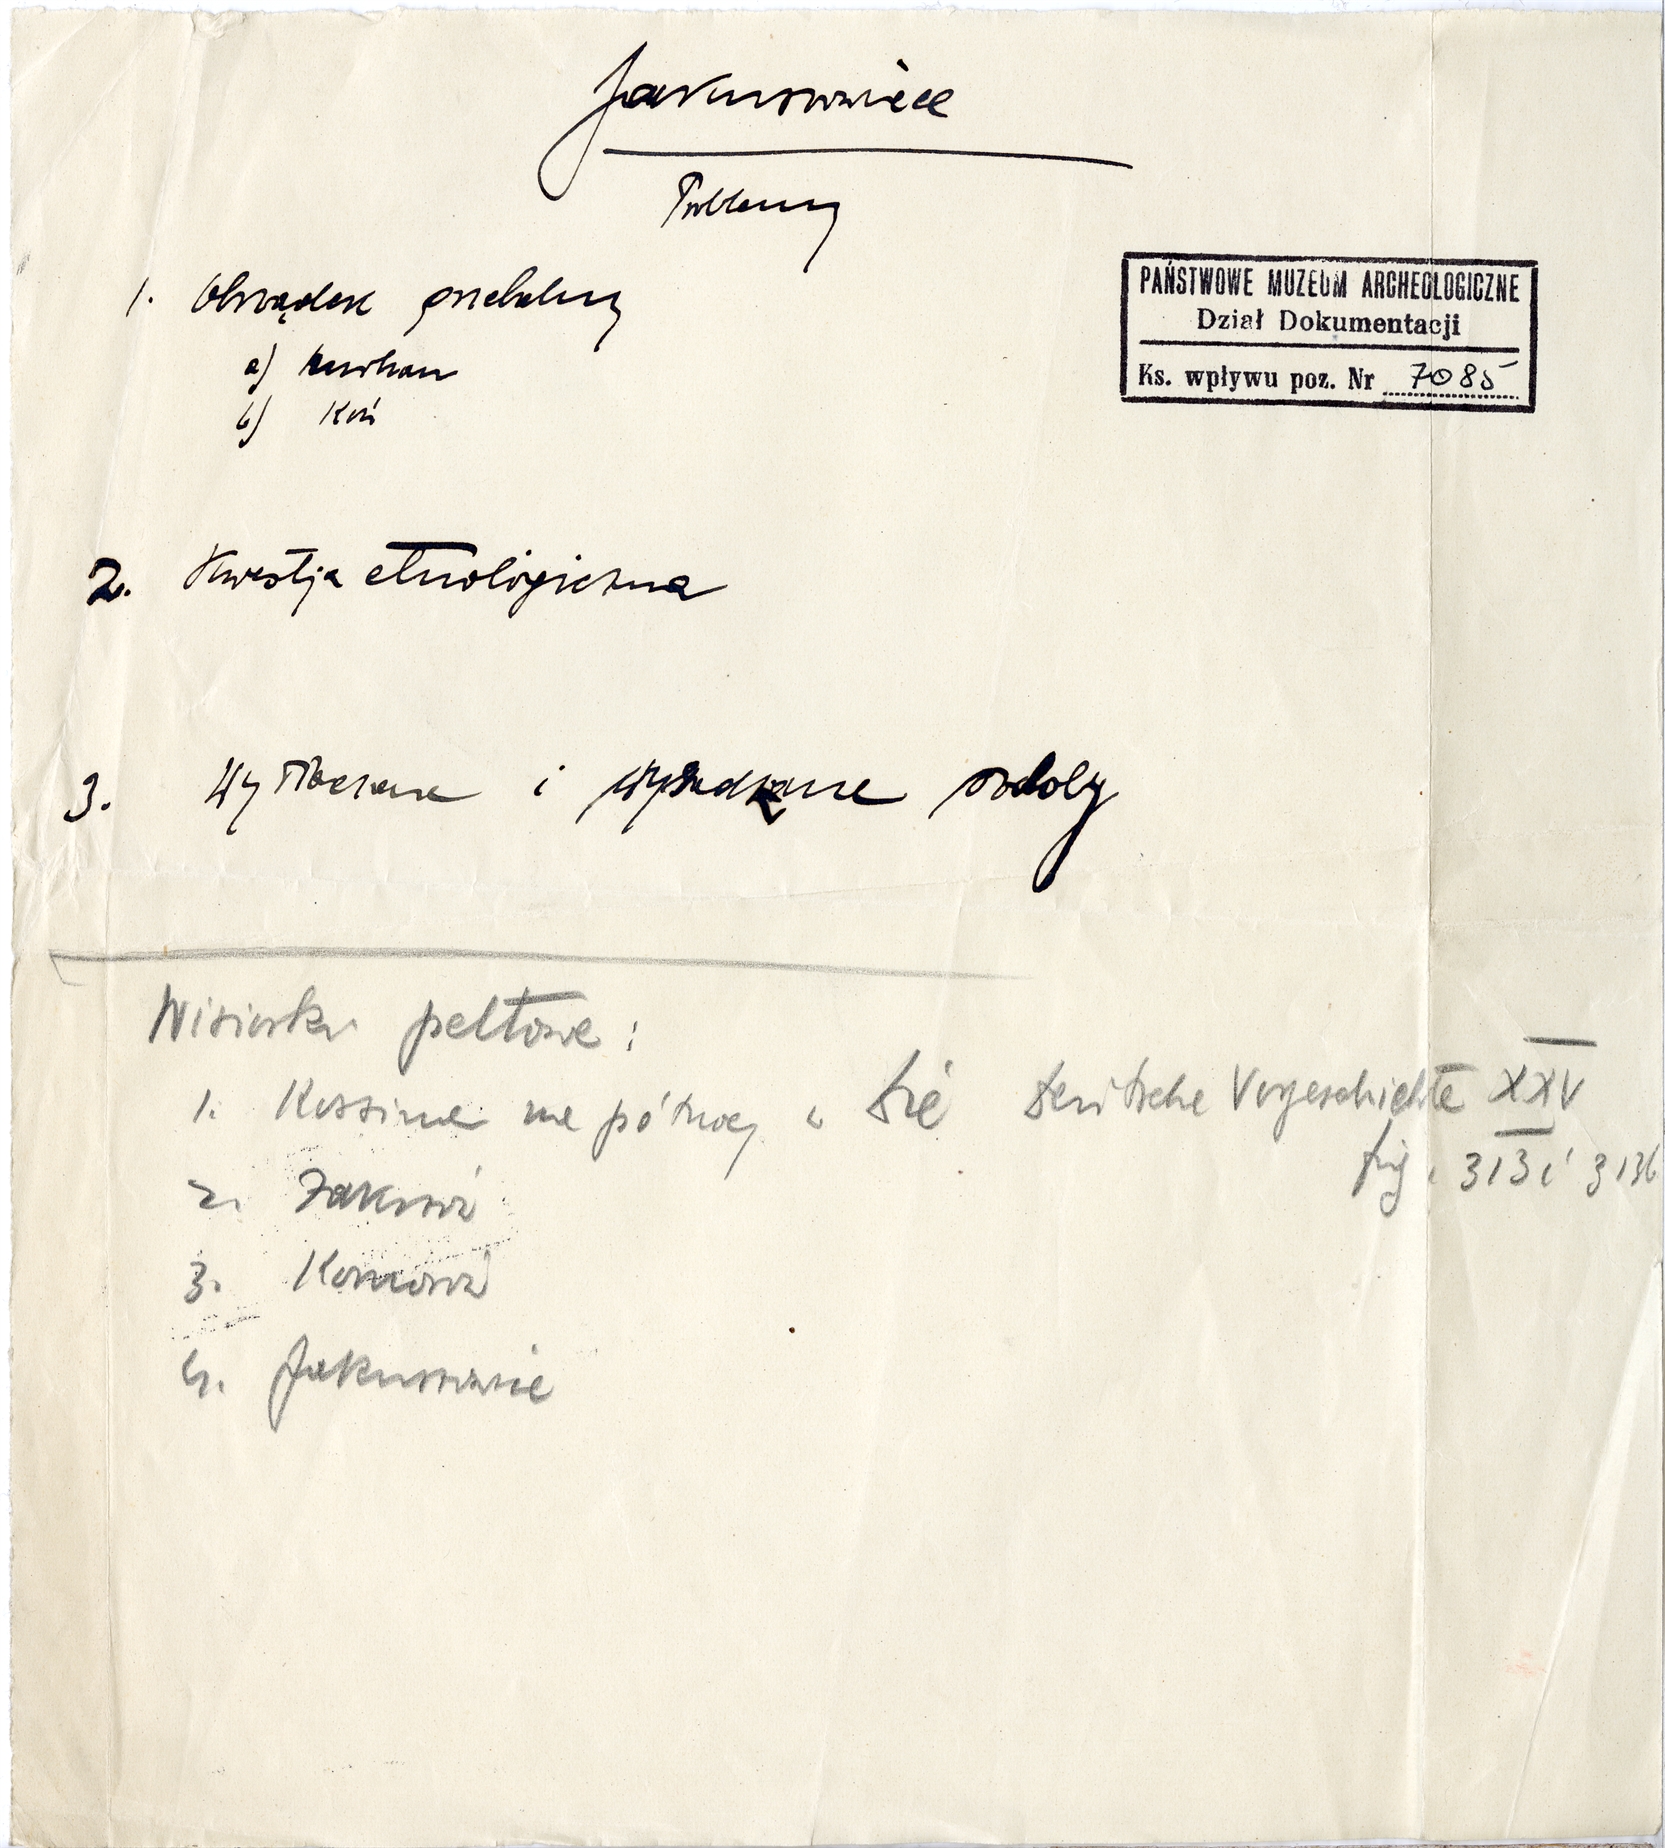 Jakuszowice
Problemy
PAŃSTWOWE MUZEUM ARCHEOLOGICZNE
Dział Dokumentacji
Ks. wpływu poz. Nr 7085
1. Obrządek grzebalny
a) kurhan
b) Koń
2. Kwestja etnologiczna
3. Wytłaczane i wysadzane ozdoby
Wisiorki peltowe:
1. Kossina na północy w Die Deutsche Vorgeschichte XXV
fig. 313 i 313b
2. Zakrzów
3.
4. Jakuszowice